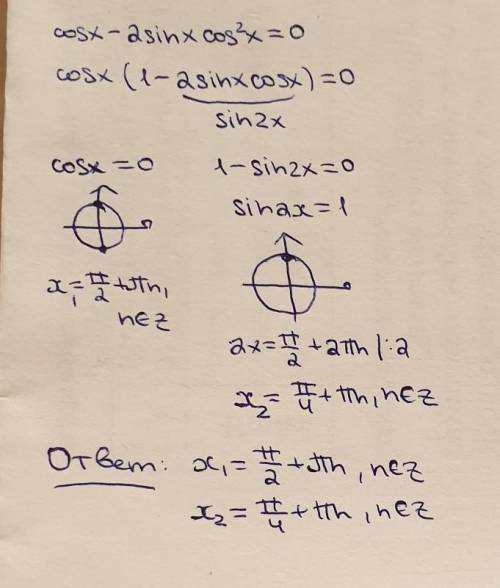 cosx - 2sinx cos²x = 0
cosx (1 - 2sinxcosx) = 0
sin2x
cosx = 0
1 - sin2x = 0
sin2x = 1
x₁ = π/2 + πn,
n∈z
2x = π/2 + 2πn |:2
x₂ = π/4 + πn, n∈z
Ответ: x₁ = π/2 + πn, n∈z
x₂ = π/4 + πn, n∈z